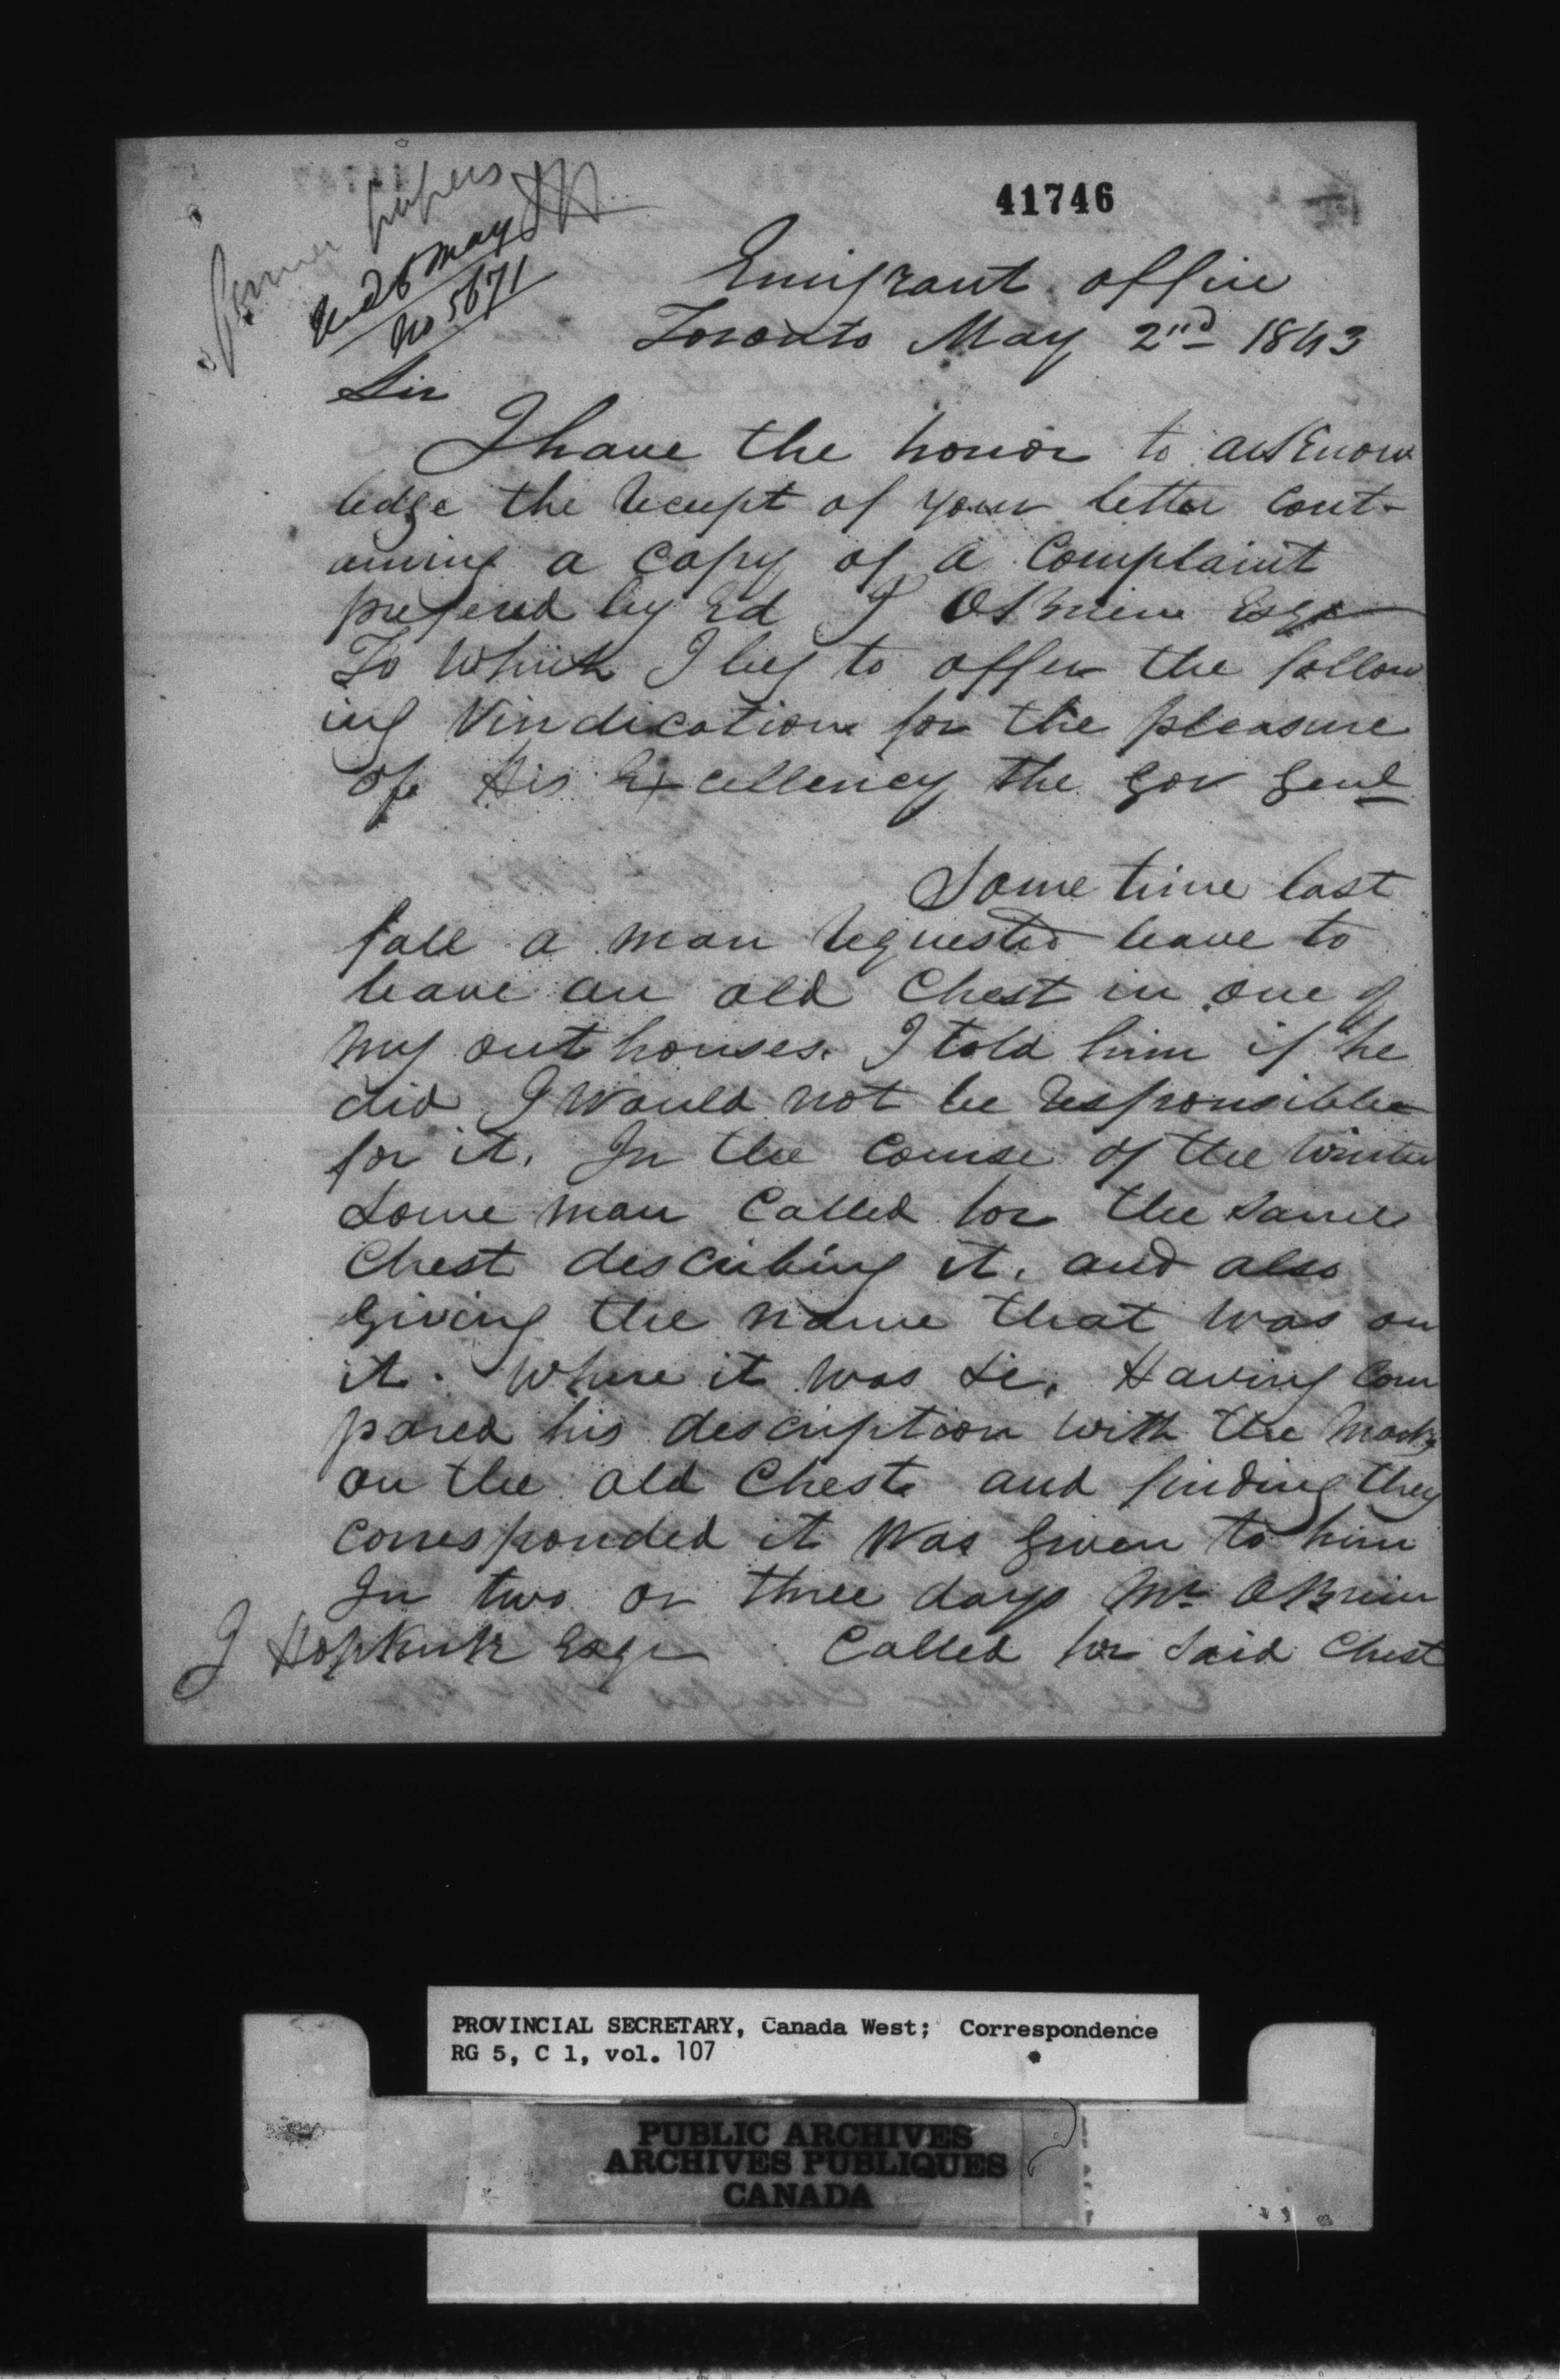 41746
former papers
Recd 5 May
No 5671
Emigrant office
Toronto May 2nd 1843
Sir
I have the honor to acknow
ledge the receipt of your letter cont-
aining a copy of a Complaint
prefered by Ed G OBrien Esqr
To which I beg to offer the follow
ing Vindication for the pleasure
of His Excellency the Gov Genl
Some time last
fall a man requested leave to
leave an old Chest in one of
my out houses. I told him if he
did I would not be responsible
for it. In the course of the winter
some man Called for the same
Chest describing it. and also
giving the name that was on
it. Where it was &c. Having Com
pared his description with the marks
on the old Chest and finding they
corresponded it was given to him
In two or three days Mr OBrien
J Hopkirk Esqr Called for said Chest
PROVINCIAL SECRETARY, Canada West; Correspondence
RG 5, C 1, vol. 107
PUBLIC ARCHIVES
ARCHIVES PUBLIQUES
CANADA